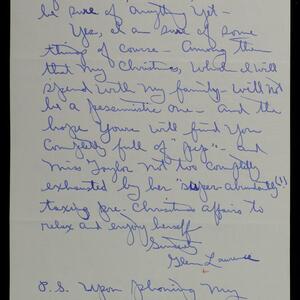 be sure of anything yet –
Yes, I am sure of some
things of course – Among them
that my Christmas, which I will
spend with my family – will not
be a pessimistic one – and the
hope yours will find you
completly full of "pep" – and
Miss Taylor not two completly
exhausted by her "super-abundantly(!)
taxing pre-Christmas affairs to
relax and enjoy herself
Sincerely
Glenn Lawrence
P.S. Upon phoning my